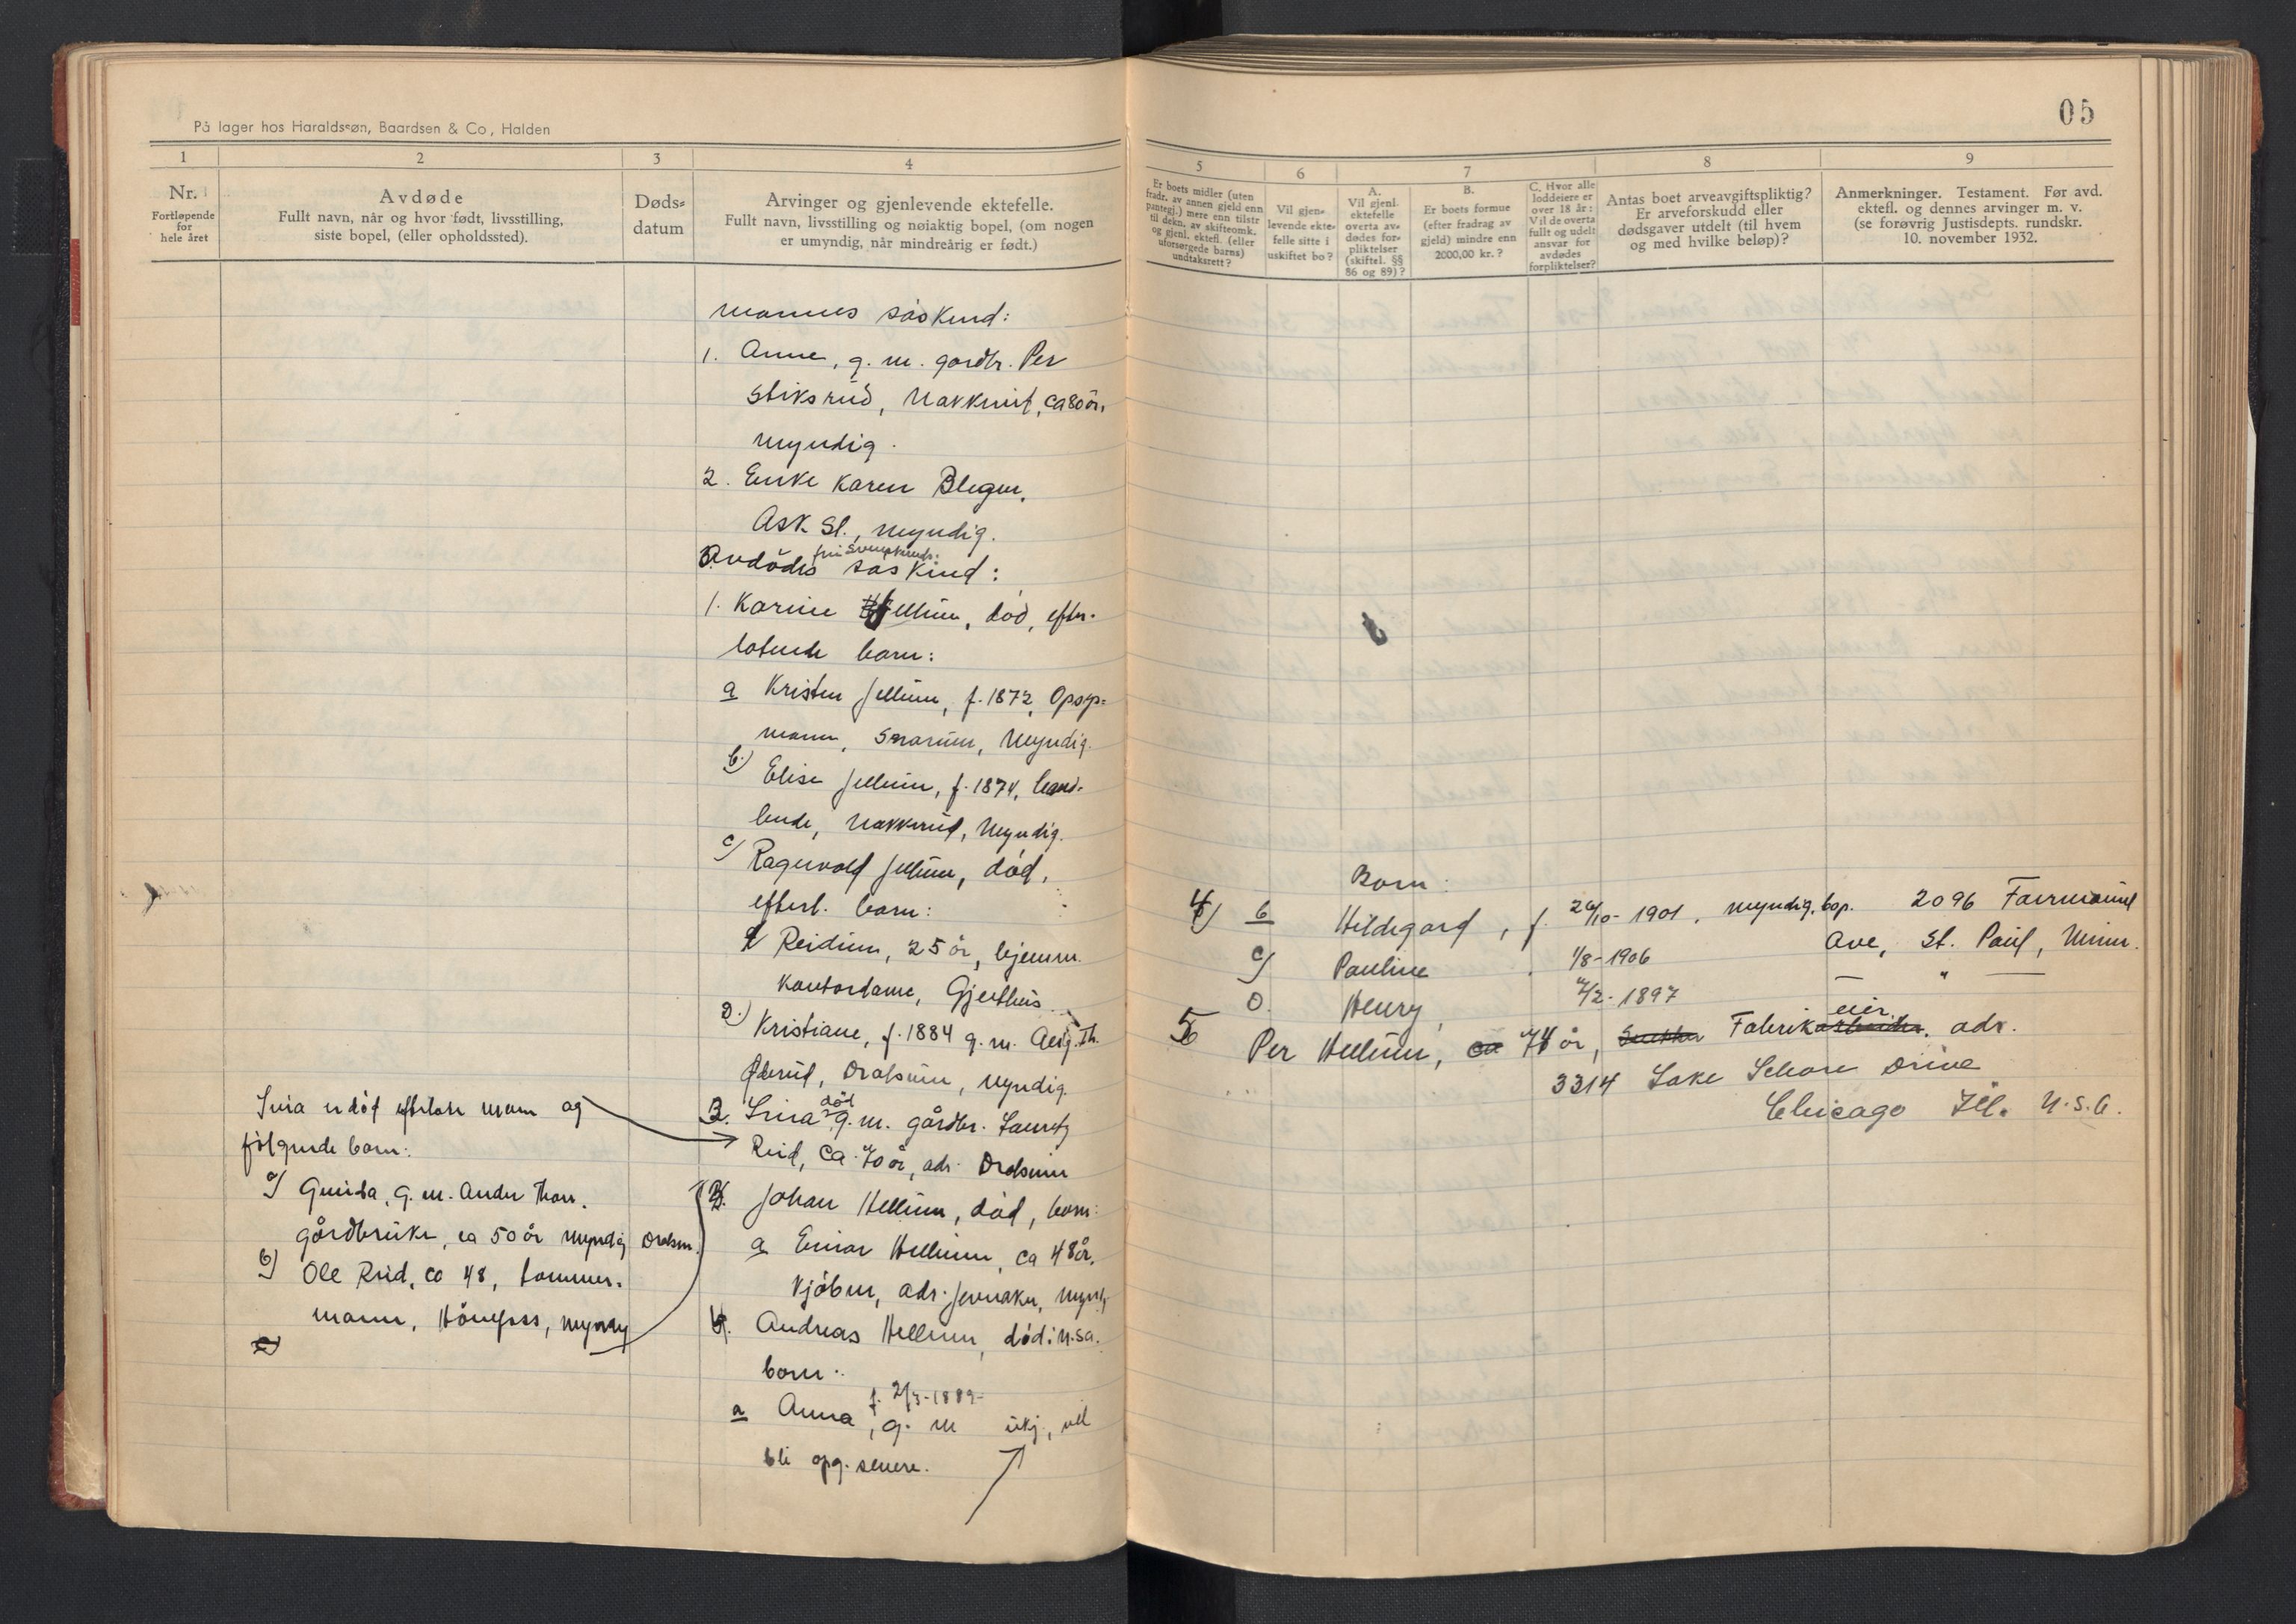 På lager hos Haraldssøn, Baardsen & Co, Halden
1
2
3
4
Nr.
Fortløpende
for
hele året
Avdøde
Fullt navn, når og hvor født, livsstilling,
siste bopel, (eller opholdssted).
Døds-
datum
Arvinger og gjenlevende ektefelle.
Fullt navn, livsstilling og nøiaktig bopel, (om nogen
er umyndig, når mindreårig er født.)
mannes søskend:
1. Anne, g. m. gardbr. Per
Stiksrud, Nakkerud, ca 80 år,
myndig.
2. Enke Karen Blegen,
Ask st., myndig.
Avdødes søskend:
1. Karine Jellum, død, efter-
latende barn:
a Kristen Jellum, f. 1872, Opsyns-
mann, Snarum, Myndig.
b.) Elise Jellum, f. 1874,
Nakkerud, Myndig.
c) Ragnvald Jellum, død,
efterl. barn:
Reidun, 25 år, hjemm.
kontordame, Gjerthus
d.) Kristiane, f. 1884 g. m. Th.
Øderud, Dralsum, myndig.
2. Lina død g. m. gårdbr. Lauritz
Ruud, ca. 70 år, adr. Dralsum
3. Johan Hellum, død, barn:
a Einar Hellum, ca 48 år,
kjøbm, adr. Jevnaker, mynd,
4. Andreas Hellum, død i U.S.A.
barn:
a Anna, f. 2/3-1889- g. m ukj., vil
bli opg. senere.
Lina er død efterlater mann og
følgende barn:
a) Gunda, g. m. Anders Thon.
gårdbruker, ca 50 år myndig Dralsum.
b) Ole Ruud, ca 48, tømmer-
mann, Hønefoss, myndig
05
5
6
7
8
9
Er boets midler (uten
fradr. av annen gjeld enn
pantegj.) mere enn tilstr
til dekn. av skifteomk.
og gjenl. ektefl. (eller
uforsørgede barns)
undtaksrett?
Vil gjen-
levende ekte-
felle sitte i
uskiftet bo?
A.
Vil gjenl.
ektefelle
overta av-
dødes for-
pliktelser
(skiftel. §§
86 og 89)?
B.
Er boets formue
(efter fradrag av
gjeld) mindre enn
2000,00 kr.?
C. Hvor alle
loddeiere er
over 18 år:
Vil de overta
fullt og udelt
ansvar for
avdødes
forpliktelser?
Antas boet arveavgiftspliktig?
Er arveforskudd eller
dødsgaver utdelt (til hvem
og med hvilke beløp)?
Anmerkninger. Testament. Før avd.
ektefl. og dennes arvinger m. v.
(se forøvrig Justisdepts. rundskr.
10. november 1932.
Barn:
4) b Hildegard, f. 26/10-1901, myndig, bop. 2096 Fairmount
Ave, St. Paul, Minn.
c) Pauline 1/8-1906 — " —
d. Henry, 7/2-1897
5 Per Hellum, 74 år, Fabrikeier, adr.
3314 Lake Schore Drive
Chicago Ill. U.S.A.